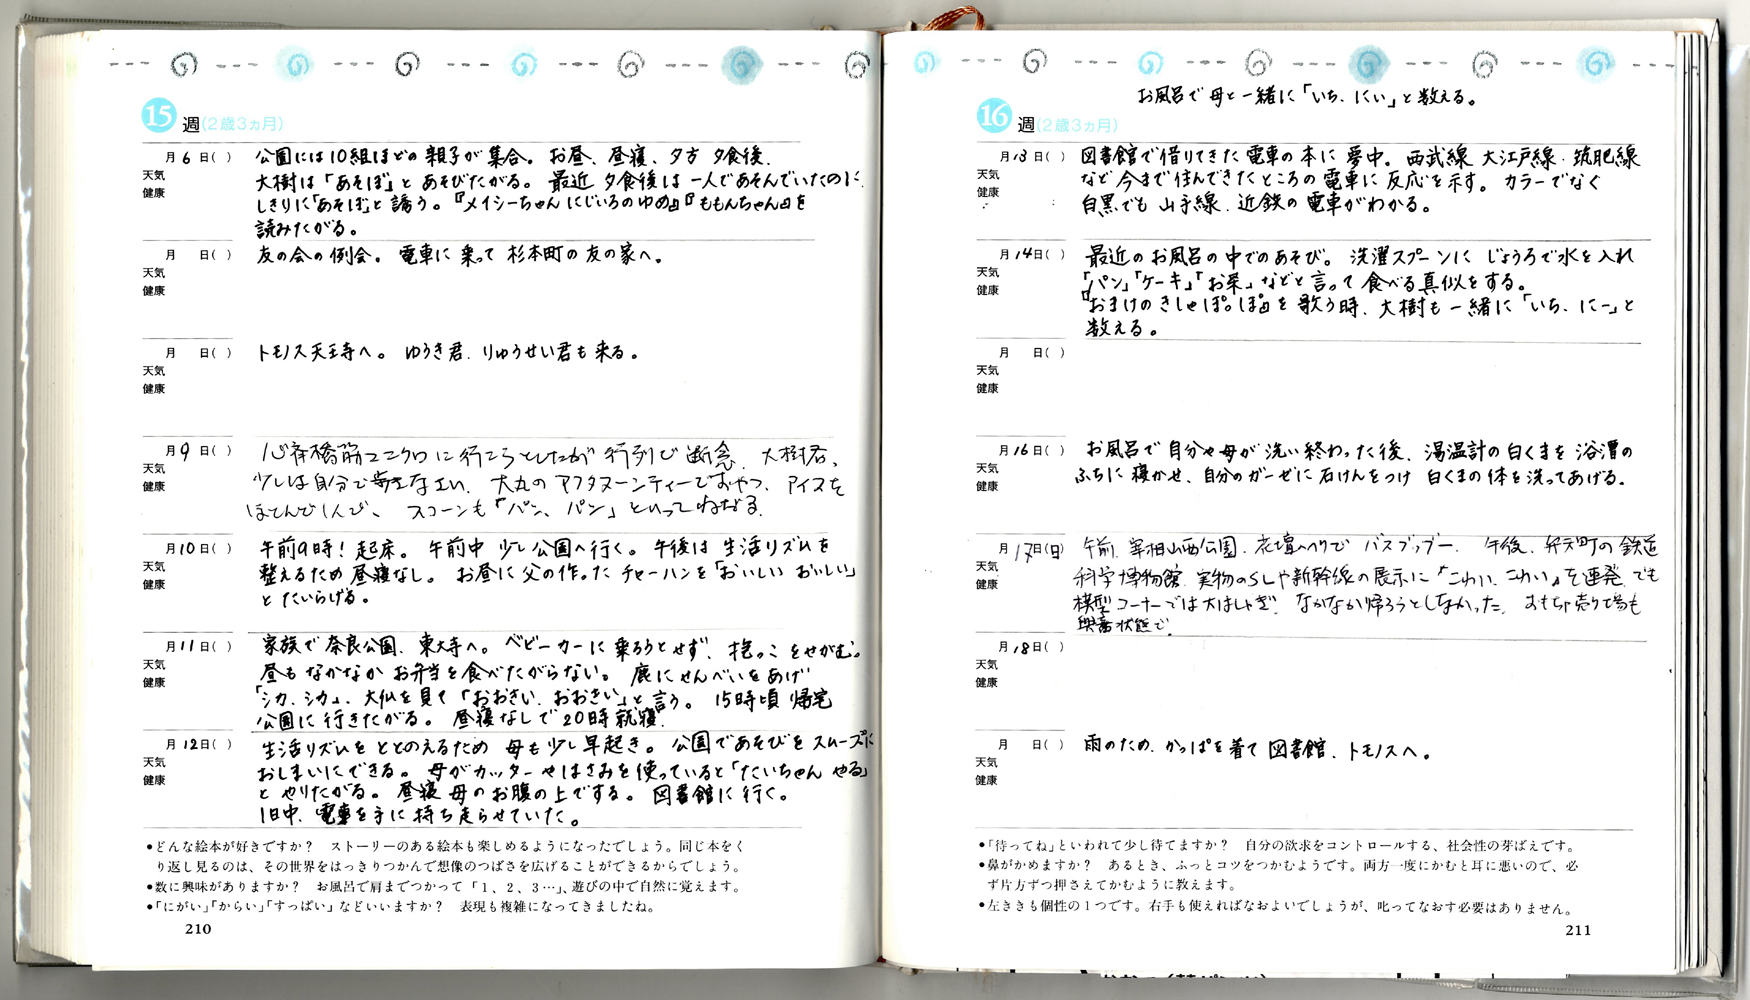 15週(2歳3ヵ月)
月6日( )
天気
健康
公園には10組ほどの親子が集合。お昼、昼寝、夕方 夕食後、
大樹は「あそぼ」とあそびたがる。最近 夕食後は一人であそんでいたのに、
しきりに「あそぼ」と誘う。『メイシーちゃん にじいろのゆめ』『ももんちゃん』を
読みたがる。
月 日( )
天気
健康
友の会の例会。電車に乗って杉本町の友の家へ。
月 日( )
天気
健康
トモノス天王寺へ。ゆうき君、りゅうせい君も来る。
月9日( )
天気
健康
心斎橋筋ユニクロに行こうとしたが行列で断念。大樹君、
少しは自分で歩きなさい、大丸のアフタヌーンティーでおやつ、アイスを
ほとんど1人で、スコーンも「パン、パン」といってねだる。
月10日( )
天気
健康
午前9時!起床。午前中 少し公園へ行く。午後は 生活リズムを
整えるため昼寝なし。お昼に父の作った チャーハンを「おいしい おいしい」
とたいらげる。
月11日( )
天気
健康
家族で奈良公園、東大寺へ。ベビーカーに乗ろうとせず、抱っこをせがむ。
昼もなかなかお弁当を食べたがらない。鹿にせんべいをあげ
「シカ、シカ」、大仏を見て「おおきい、おおきい」と言う。15時頃 帰宅
公園に行きたがる。昼寝なしで20時就寝。
月12日( )
天気
健康
生活リズムをととのえるため 母も少し早起き。公園であそびをスムーズに
おしまいにできる。母がカッターやはさみを使っていると「たいちゃん やる」
とやりたがる。昼寝 母のお腹の上でする。図書館に行く。
1日中、電車を手に持ち走らせていた。
●どんな絵本が好きですか? ストーリーのある絵本も楽しめるようになったでしょう。同じ本をく
り返し見るのは、その世界をはっきりつかんで想像のつばさを広げることができるからでしょう。
●数に興味がありますか? お風呂で肩までつかって「1、2、3…」、遊びの中で自然に覚えます。
●「にがい」「からい」「すっぱい」などいいますか? 表現も複雑になってきましたね。
210
お風呂で母と一緒に「いち、にぃ」と数える。
16週(2歳3ヵ月)
月13日( )
天気
健康
図書館で借りてきた電車の本に夢中。西武線 大江戸線、筑肥線
など今まで住んできたところの電車に反応を示す。カラーでなく
白黒でも山手線、近鉄の電車がわかる。
月14日( )
天気
健康
最近のお風呂の中でのあそび。洗濯スプーンに じょうろで水を入れ
「パン」「ケーキ」「お茶」などと言って食べる真似をする。
『おまけのきしゃぽっぽ』を歌う時、大樹も一緒に「いち、にー」と
数える。
月 日( )
天気
健康
月16日( )
天気
健康
お風呂で自分や母が洗い終わった後、湯温計の白くまを浴漕の
ふちに寝かせ、自分のガーゼに石けんをつけ 白くまの体を洗ってあげる。
月17日(日)
天気
健康
午前、宰相山西公園、花壇へりでバスブッブー、午後、弁天町の鉄道
科学博物館、実物のSLや新幹線の展示に「こわい、こわい」を連発、でも
模型コーナーでは大はしゃぎ、なかなか帰ろうとしなかった。おもちゃ売り場も
興奮状態で。
月18日( )
天気
健康
月 日( )
天気
健康
雨のため、かっぱを着て図書館、トモノスへ。
●「待ってね」といわれて少し待てますか? 自分の欲求をコントロールする、社会性の芽ばえです。
●鼻がかめますか? あるとき、ふっとコツをつかむようです。両方一度にかむと耳に悪いので、必
ず片方ずつ押さえてかむように教えます。
●左ききも個性の1つです。右手も使えればなおよいでしょうが、叱ってなおす必要はありません。
211